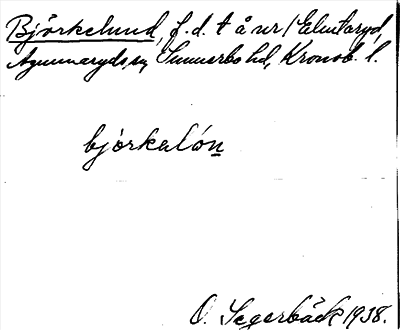 Björkelund, f. d. t å nr 1 Elmtaryd,
Agunnaryds sn, Sunnerbo hd, Kronob. l.
bjórkalón
O. Segerbäck 1938.